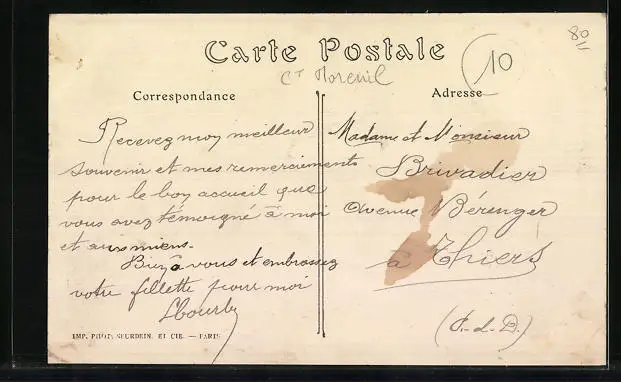 Carte Postale
Ct Moreuil
10
80
Correspondance
Adresse
Recevez mon meilleur
souvenir et mes remerciements
pour le bon accueil que
vous avez témoigné à moi
et aux miens.
Bien à vous et embrassez
votre fillette pour moi
Madame et Monsieur
Brivadier
Avenue Bérenger
à Thiers
(P.-d.-D.)
IMP. PHOT. NEURDEIN ET CIE. — PARIS